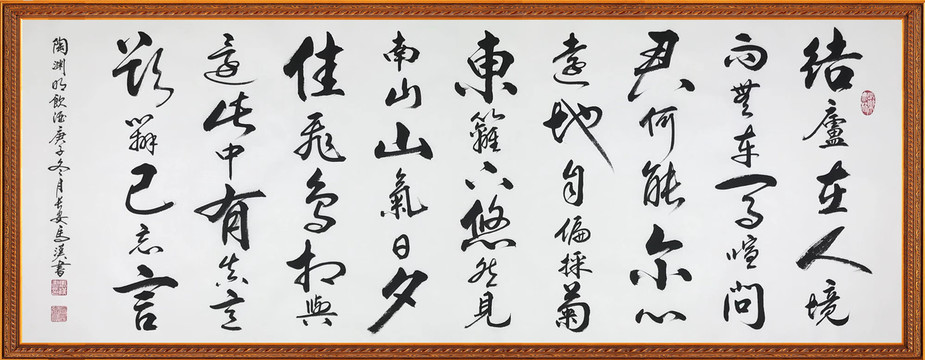 结廬在人境
而無車馬喧問
君何能尔心
遠地自偏採菊
東籬下悠然見
南山山氣日夕
佳飛鳥相與
還此中有真意
欲辨已忘言
陶渊明飲酒庚子冬月長安馬漢書